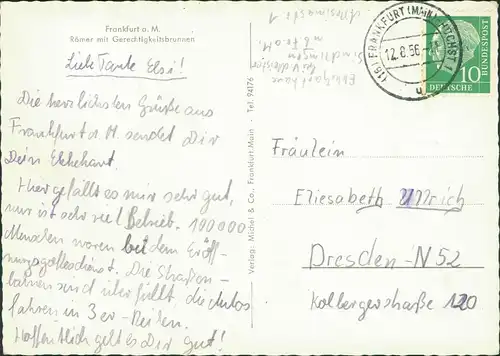 Frankfurt a. M.
Römer mit Gerechtigkeitsbrunnen
Liebe Tante Elsi!
Die herzlichsten Grüße aus
Frankfurt a. M. sendet Dir
Dein Ekkehart.
Hier gefällt es mir sehr gut,
nur ist sehr viel Betrieb. 100000
Menschen waren bei dem Eröff-
nungsgottesdienst. Die Straßen-
bahnen sind überfüllt, die Autos
fahren in 3er-Reihen.
Hoffentlich geht es Dir gut!
Verlag: Mickel & Co., Frankfurt/Main · Tel. 94176
Ekkehart
Sindlingen
(16) FRANKFURT (MAIN)-HÖCHST
12.8.56
u
10
DEUTSCHE BUNDESPOST
Fräulein
Elisabeth Ullrich
Dresden-N 52
Kolbergerstraße 120